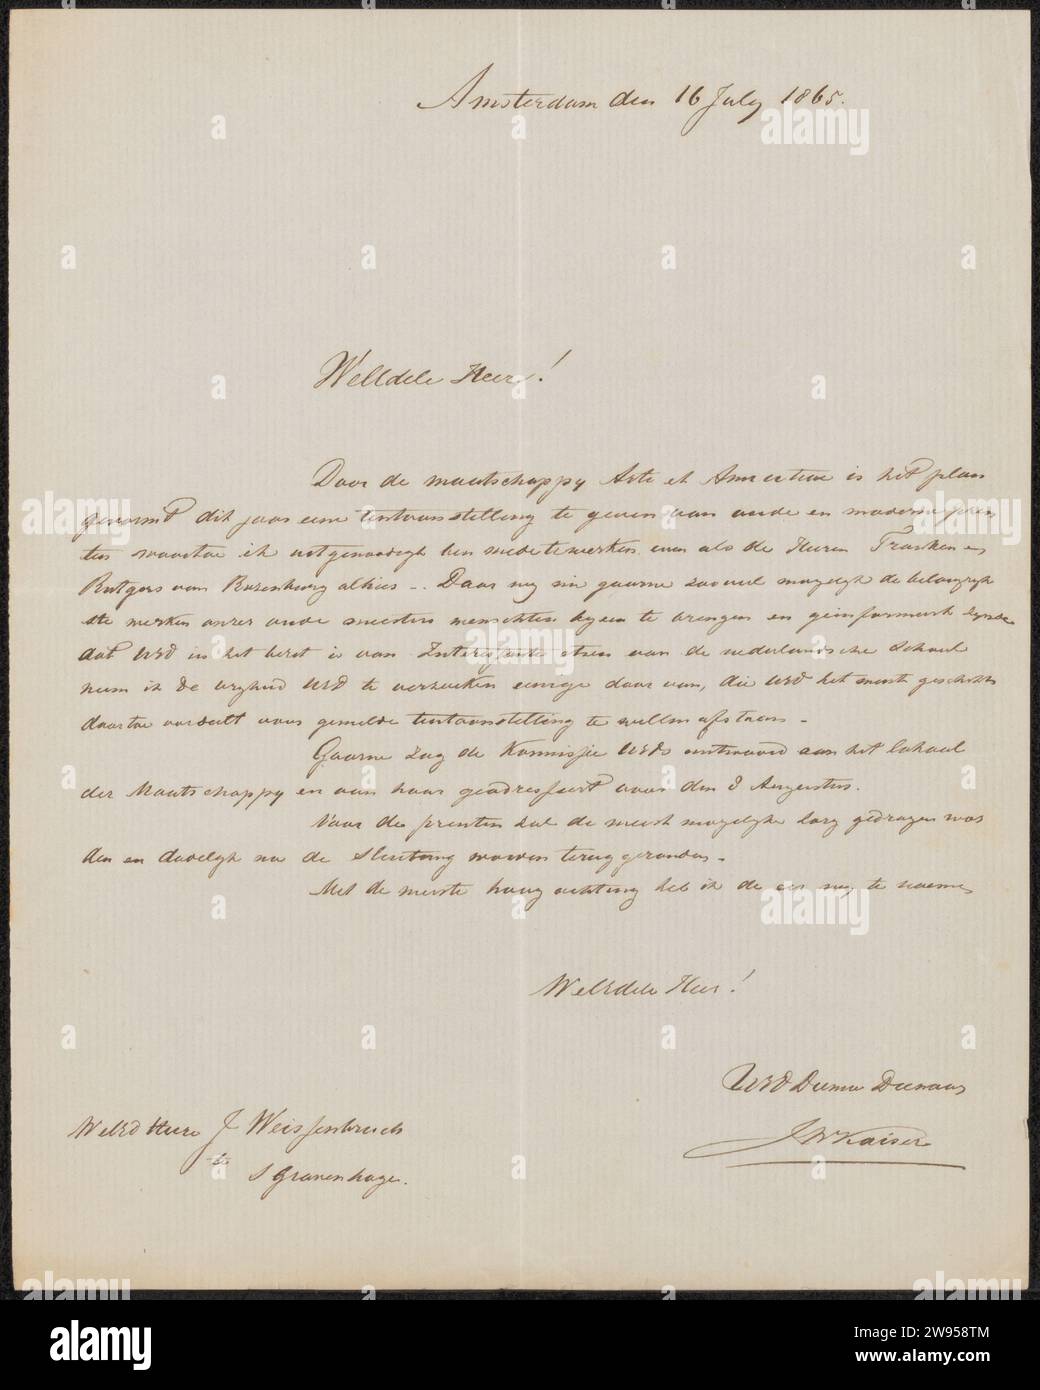 Amsterdam den 16 July 1865.
WelEdele Heer!
Door de maatschappy Arti et Amicitiae is het plan
gevormt dit jaar eene tentoonstelling te geven van oude en moderne pren
ten waartoe ik uitgenoodigt ben mede te werken even als de Heeren Franken en
Rutgers van Rozenburg alhier -. Daar wy nu gaarne zooveel mogelyk de belangryk
ste werken onzer oude meesters wenschten byeen te brengen en geinformeert zynde
dat UEd in het bezit is van Interessante etsen van de nederlandsche School
neem ik de vryheid UEd te verzoeken eenige daar van, die UEd het meest geschikt
daartoe oordeelt voor gemelde tentoonstelling te willen afstaan -
Gaarne zag de Kommissie UEds antwoord aan het lokaal
der Maatschappy en aan haar geadresseert voor den 8 Augustus.
Voor de prenten zal de meest mogelyke zorg gedragen wor
den en dadelyk na de Sluiting worden terug gezonden -
Met de meeste hoog achting heb ik de eer my te noemen
WelEdele Heer!
UEd Dienw Dienaar
JWKaiser
WelEd Heer J Weissenbruch
te
S Gravenhage.
alamy
Image ID: 2W958TM
www.alamy.com